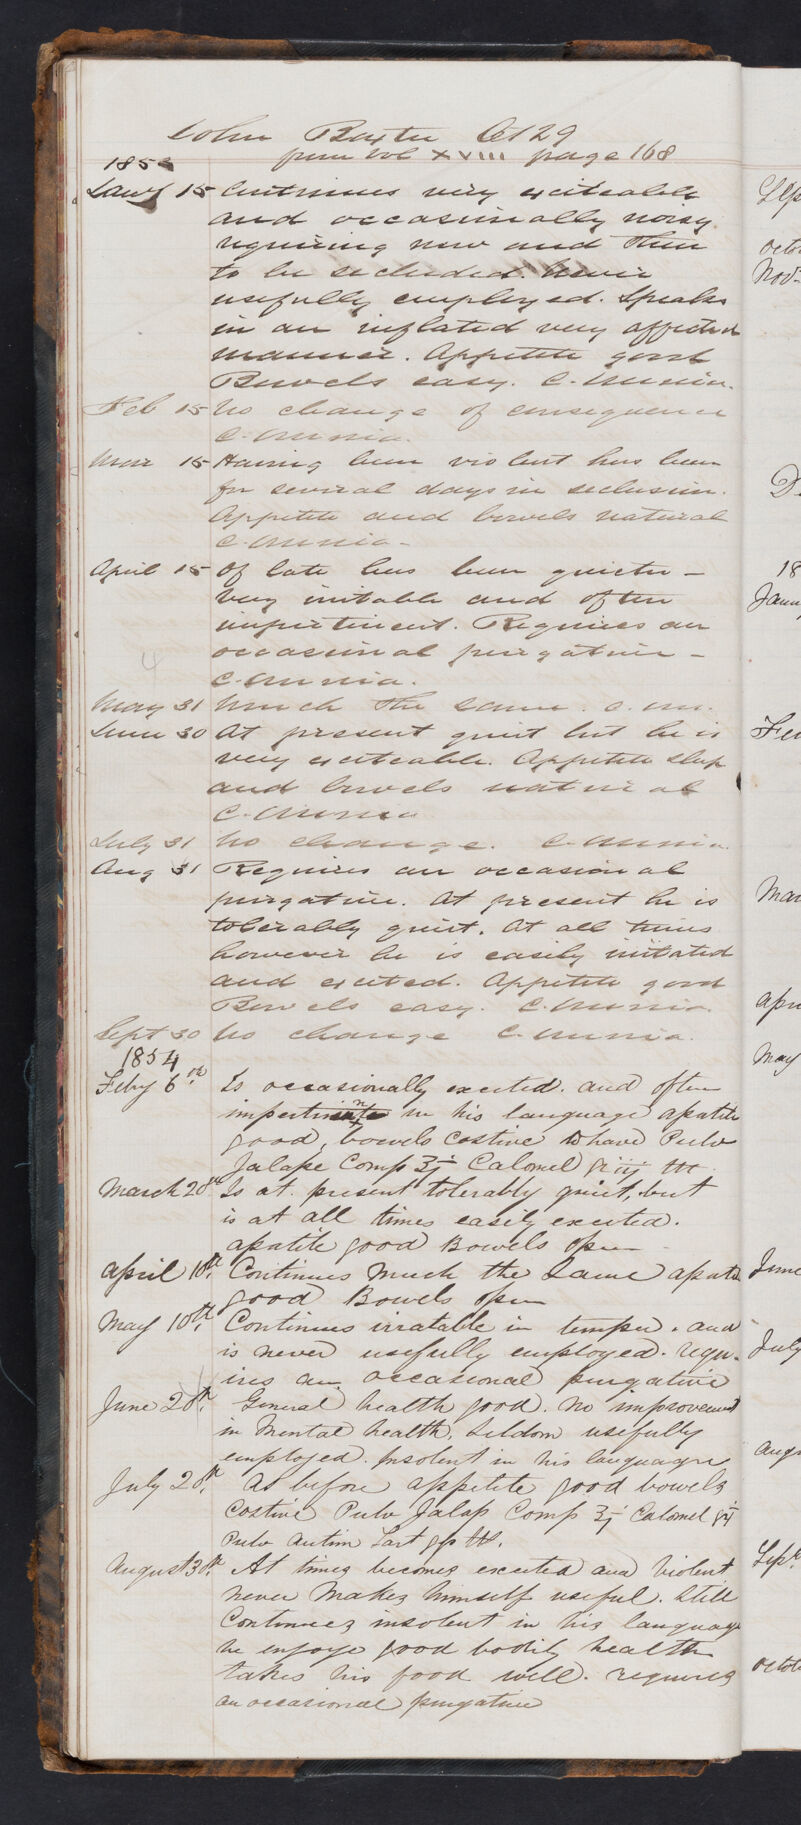 John Baxter Æt 29
from Vol XVIII page 168
185
Jany 15 Continues very exciteable
and occasionally noisy
requiring now and then
to be secluded. Never
usefully employed. Speaks
in an inflated very affected
manner. Appetite good
Bowels easy. C. Mania.
Feb 15 No change of consequence
C. Mania.
Mar 15 Having been violent has been
for several days in seclusion.
Appetite and bowels natural
C. Mania -
April 15 Of late has been quieter -
very irritable and often
impertinent. Requires an
occasional purgative -
C. Mania.
May 31 Much the same. C. Ma.
June 30 At present quiet but he is
very exciteable. Appetite sleep
and bowels natural
C. Mania
July 31 No change. C. Mania.
Aug 31 Requires an occasional
purgative. At present he is
tolerably quiet. At all times
however he is easily irritated
and excited. Appetite good
Bowels easy. C. Mania.
Sept 30 No change C. Mania.
1854
Feby 6th Is occasionally excited. and often
impertinent in his language apatite
good, bowels costive to have Pulv
Jalape Comp ʒj Calomel gr iij HS.
March 28th Is at present tolerably quiet, but
is at all times easily excited.
apatite good Bowels open
April 10th Continues much the same apatite
good Bowels open
May 10th Continues irratable in temper. and
is never usefully employed. requ-
ires an occasional purgative
June 20th General health good. No improvement
in Mental health. Seldom usefully
employed. Insolent in his language
July 20th As before appetite good bowels
Costive Pulv Jalap Comp ʒj Calomel
Pulv Antim Tart HS.
August 30th At times becomes excited and violent
never makes himself useful. Still
Continues insolent in his language
he enjoys good bodily health
takes his food well. requires
an occasional purgative
4
Sep
Octo
Nov
D
18
Janu
Feb
Mar
Apr
May
June
July
Augu
Sepr
Octob